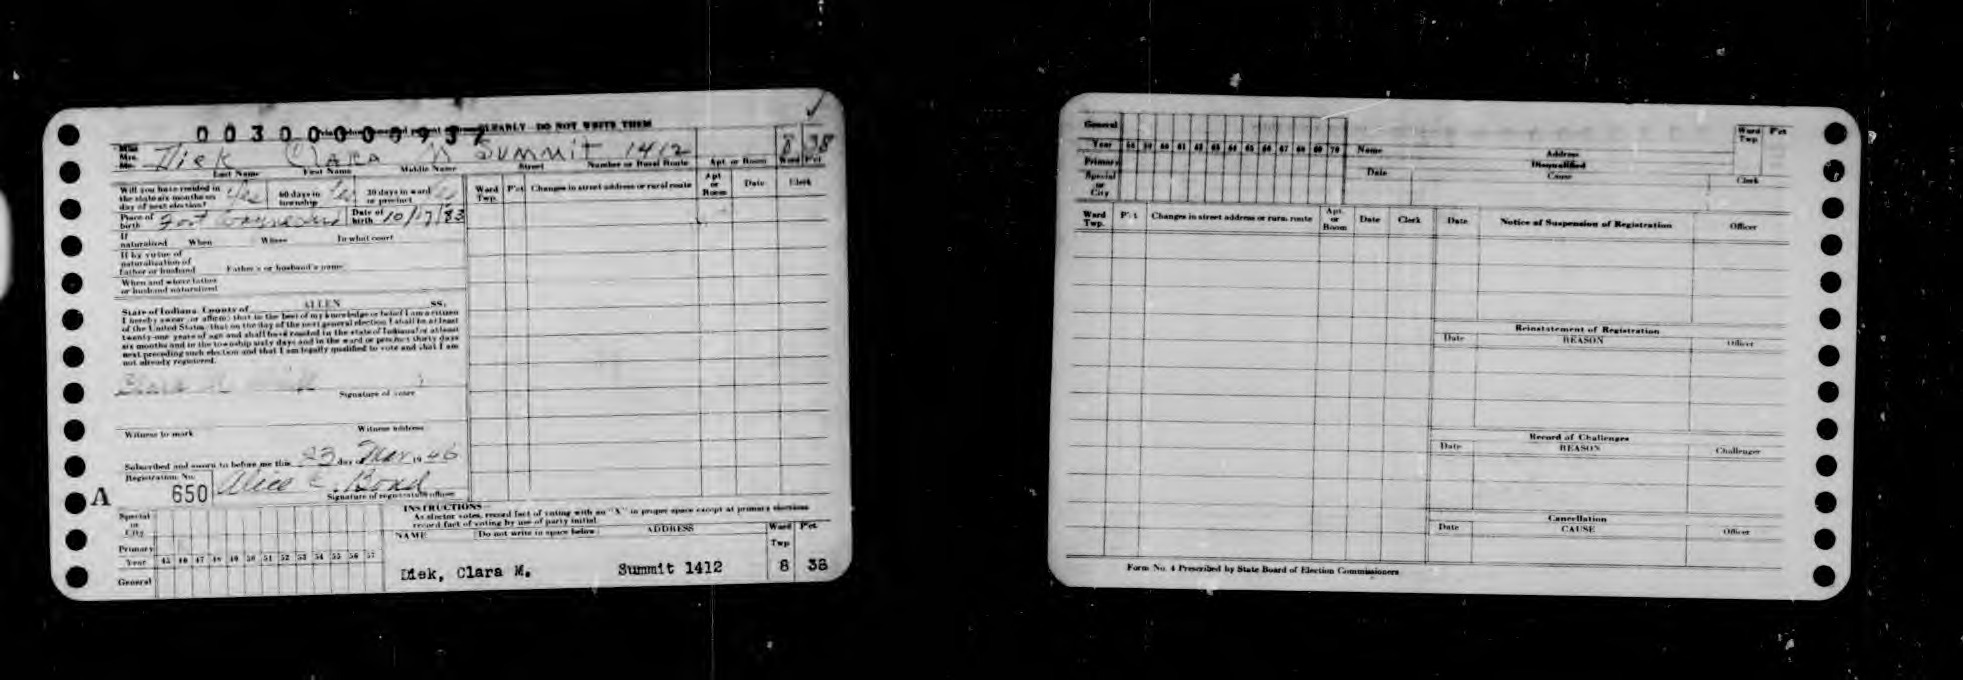 00300000937
CLEARLY DO NOT WRITE THEM
Miss
Mrs.
Mr.
Diek Clara M Summit 1412 8 38
Last Name First Name Middle Name Street Number or Rural Route Apt. or Room Ward P'ct
Will you have resided in
the state six months on
day of next election? Yes
60 days in
township Yes
30 days in ward
or precinct
Place of
birth Fort Wayne Ind
Date of
birth 10/17/83
If
naturalized When Where In what court
If by virtue of
naturalization of
father or husband Father's or husband's name
When and where father
or husband naturalized
State of Indiana, County of ALLEN SS:
I hereby swear (or affirm) that to the best of my knowledge or belief I am a citizen
of the United States; that on the day of the next general election I shall be at least
twenty-one years of age and shall have resided in the state of Indiana for at least
six months and in the township sixty days and in the ward or precinct thirty days
next preceding such election and that I am legally qualified to vote and that I am
not already registered.
Signature of voter
Witness to mark Witness address
Subscribed and sworn to before me this 23 day of Mar 1946
Registration No.
A 650 Alice C. Bond
Signature of registration officer
Ward
Twp. P'ct Changes in street address or rural route Apt
or
Room Date Clerk
INSTRUCTIONS—
As elector votes, record fact of voting with an "X" in proper space except at primary elections
record fact of voting by use of party initial.
Special
or
City
Primary
Year 45 46 47 48 49 50 51 52 53 54 55 56 57
General
NAME (Do not write in space below) ADDRESS Ward
Twp P'ct
Diek, Clara M. Summit 1412 8 38
General
Year 58 59 60 61 62 63 64 65 66 67 68 69 70
Primary
Special
or
City
Name Address
Ward
Twp P'ct
Disqualified
Date Cause Clerk
Ward
Twp. P't Changes in street address or rural route Apt.
or
Room Date Clerk
Date Notice of Suspension of Registration Officer
Reinstatement of Registration
Date REASON Officer
Record of Challenges
Date REASON Challenger
Cancellation
Date CAUSE Officer
Form No. 4 Prescribed by State Board of Election Commissioners